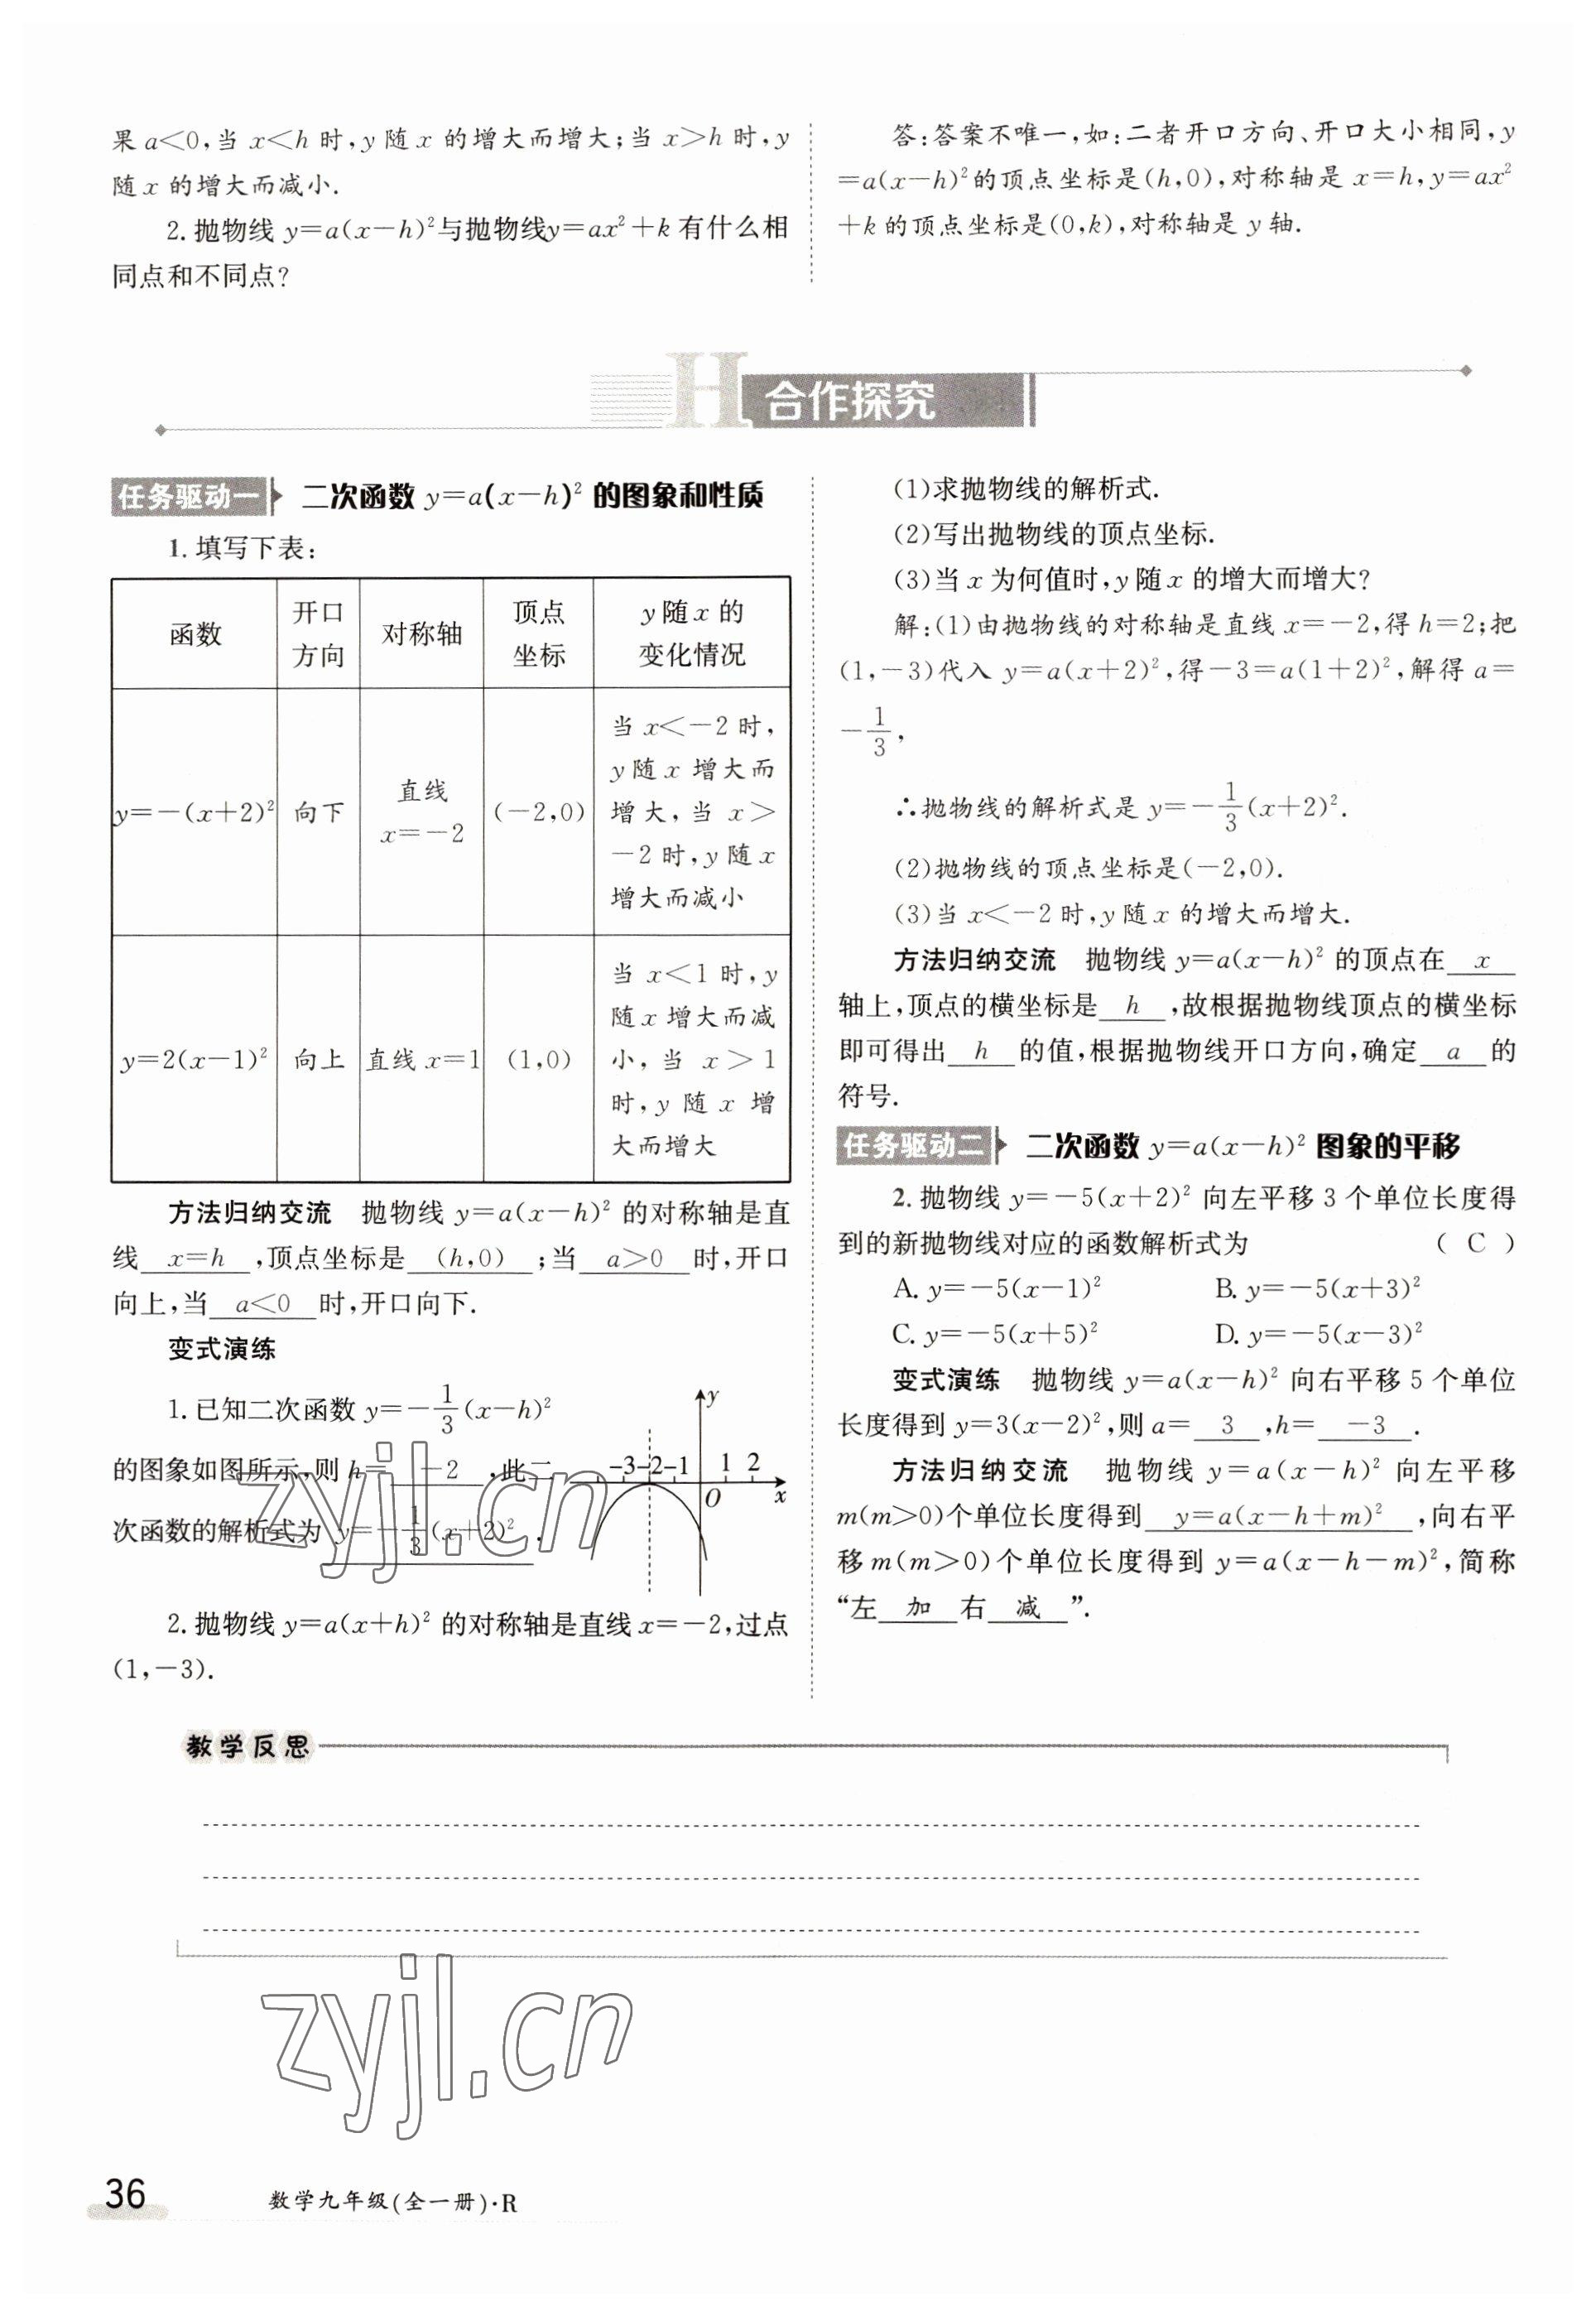 果 a<0,当 x<h 时,y 随 x 的增大而增大;当 x>h 时,y
随 x 的增大而减小.
2. 抛物线 y=a(x-h)²与抛物线y=ax²+k 有什么相
同点和不同点?
答:答案不唯一,如:二者开口方向、开口大小相同,y
=a(x-h)²的顶点坐标是(h,0),对称轴是 x=h,y=ax²
+k 的顶点坐标是(0,k),对称轴是 y 轴.
H 合作探究
任务驱动一 二次函数 y=a(x-h)² 的图象和性质
1. 填写下表:
函数 开口方向 对称轴 顶点坐标 y 随 x 的变化情况
y=-(x+2)² 向下 直线 x=-2 (-2,0) 当 x<-2 时,y 随 x 增大而增大,当 x>-2 时,y 随 x 增大而减小
y=2(x-1)² 向上 直线 x=1 (1,0) 当 x<1 时,y 随 x 增大而减小,当 x>1 时,y 随 x 增大而增大
方法归纳交流 抛物线 y=a(x-h)² 的对称轴是直
线 x=h ,顶点坐标是 (h,0) ;当 a>0 时,开口
向上,当 a<0 时,开口向下.
变式演练
1. 已知二次函数 y=-1/3(x-h)²
的图象如图所示,则 h= -2 ,此二
次函数的解析式为 y=-1/3(x+2)² .
y
-3 -2 -1 1 2
O x
2. 抛物线 y=a(x+h)² 的对称轴是直线 x=-2,过点
(1,-3).
(1)求抛物线的解析式.
(2)写出抛物线的顶点坐标.
(3)当 x 为何值时,y 随 x 的增大而增大?
解:(1)由抛物线的对称轴是直线 x=-2,得 h=2;把
(1,-3)代入 y=a(x+2)²,得-3=a(1+2)²,解得 a=
-1/3,
∴抛物线的解析式是 y=-1/3(x+2)².
(2)抛物线的顶点坐标是(-2,0).
(3)当 x<-2 时,y 随 x 的增大而增大.
方法归纳交流 抛物线 y=a(x-h)² 的顶点在 x
轴上,顶点的横坐标是 h ,故根据抛物线顶点的横坐标
即可得出 h 的值,根据抛物线开口方向,确定 a 的
符号.
任务驱动二 二次函数 y=a(x-h)² 图象的平移
2. 抛物线 y=-5(x+2)² 向左平移 3 个单位长度得
到的新抛物线对应的函数解析式为 ( C )
A. y=-5(x-1)² B. y=-5(x+3)²
C. y=-5(x+5)² D. y=-5(x-3)²
变式演练 抛物线 y=a(x-h)² 向右平移 5 个单位
长度得到 y=3(x-2)²,则 a= 3 ,h= -3 .
方法归纳交流 抛物线 y=a(x-h)² 向左平移
m(m>0)个单位长度得到 y=a(x-h+m)² ,向右平
移 m(m>0)个单位长度得到 y=a(x-h-m)²,简称
“左 加 右 减 ”.
教学反思
zyjl.cn
zyjl.cn
36
数学九年级(全一册)·R